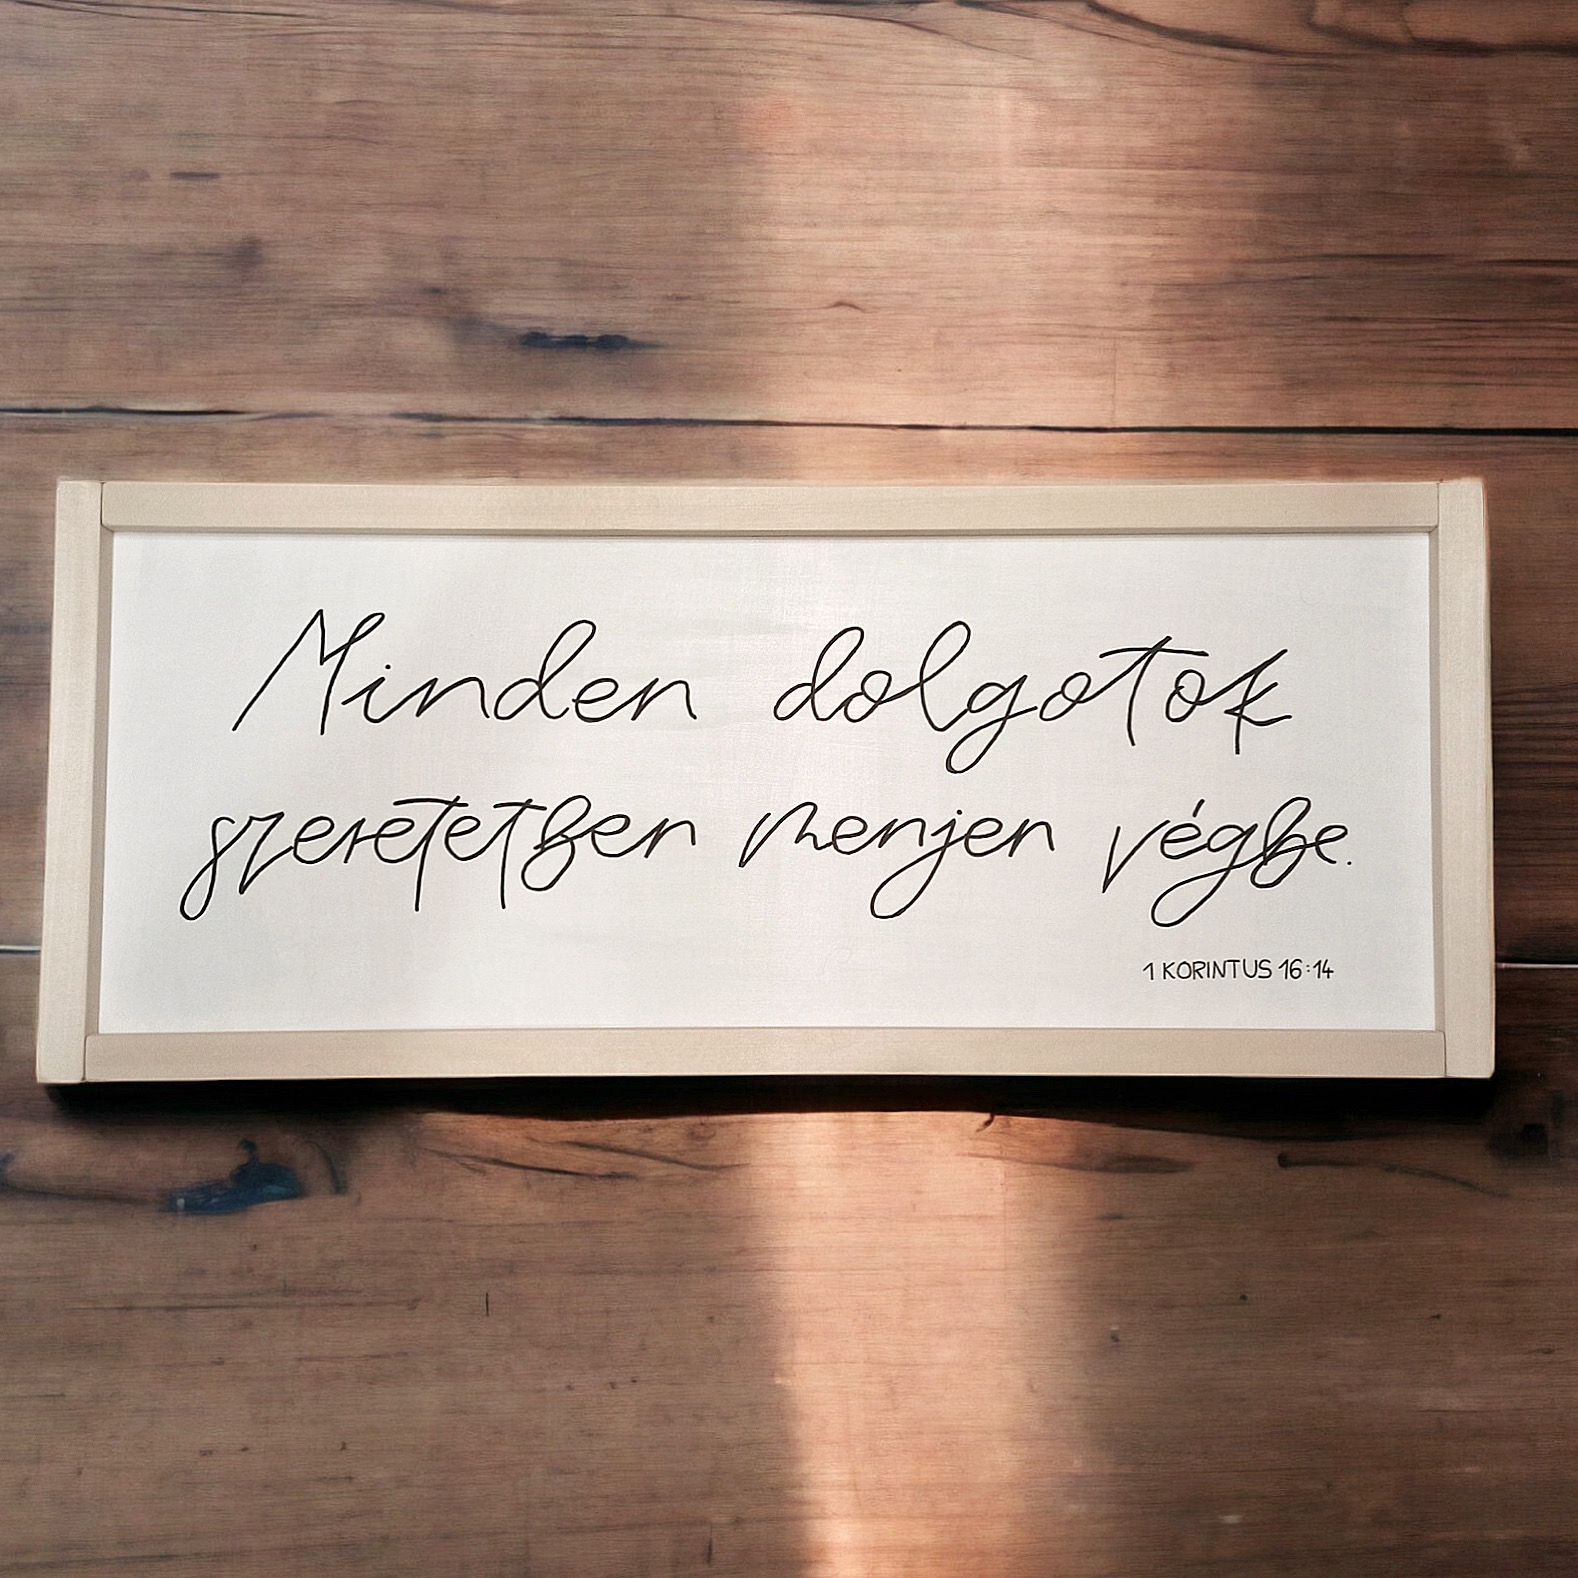 Minden dolgotok
szeretetben menjen végbe.
1 KORINTUS 16:14